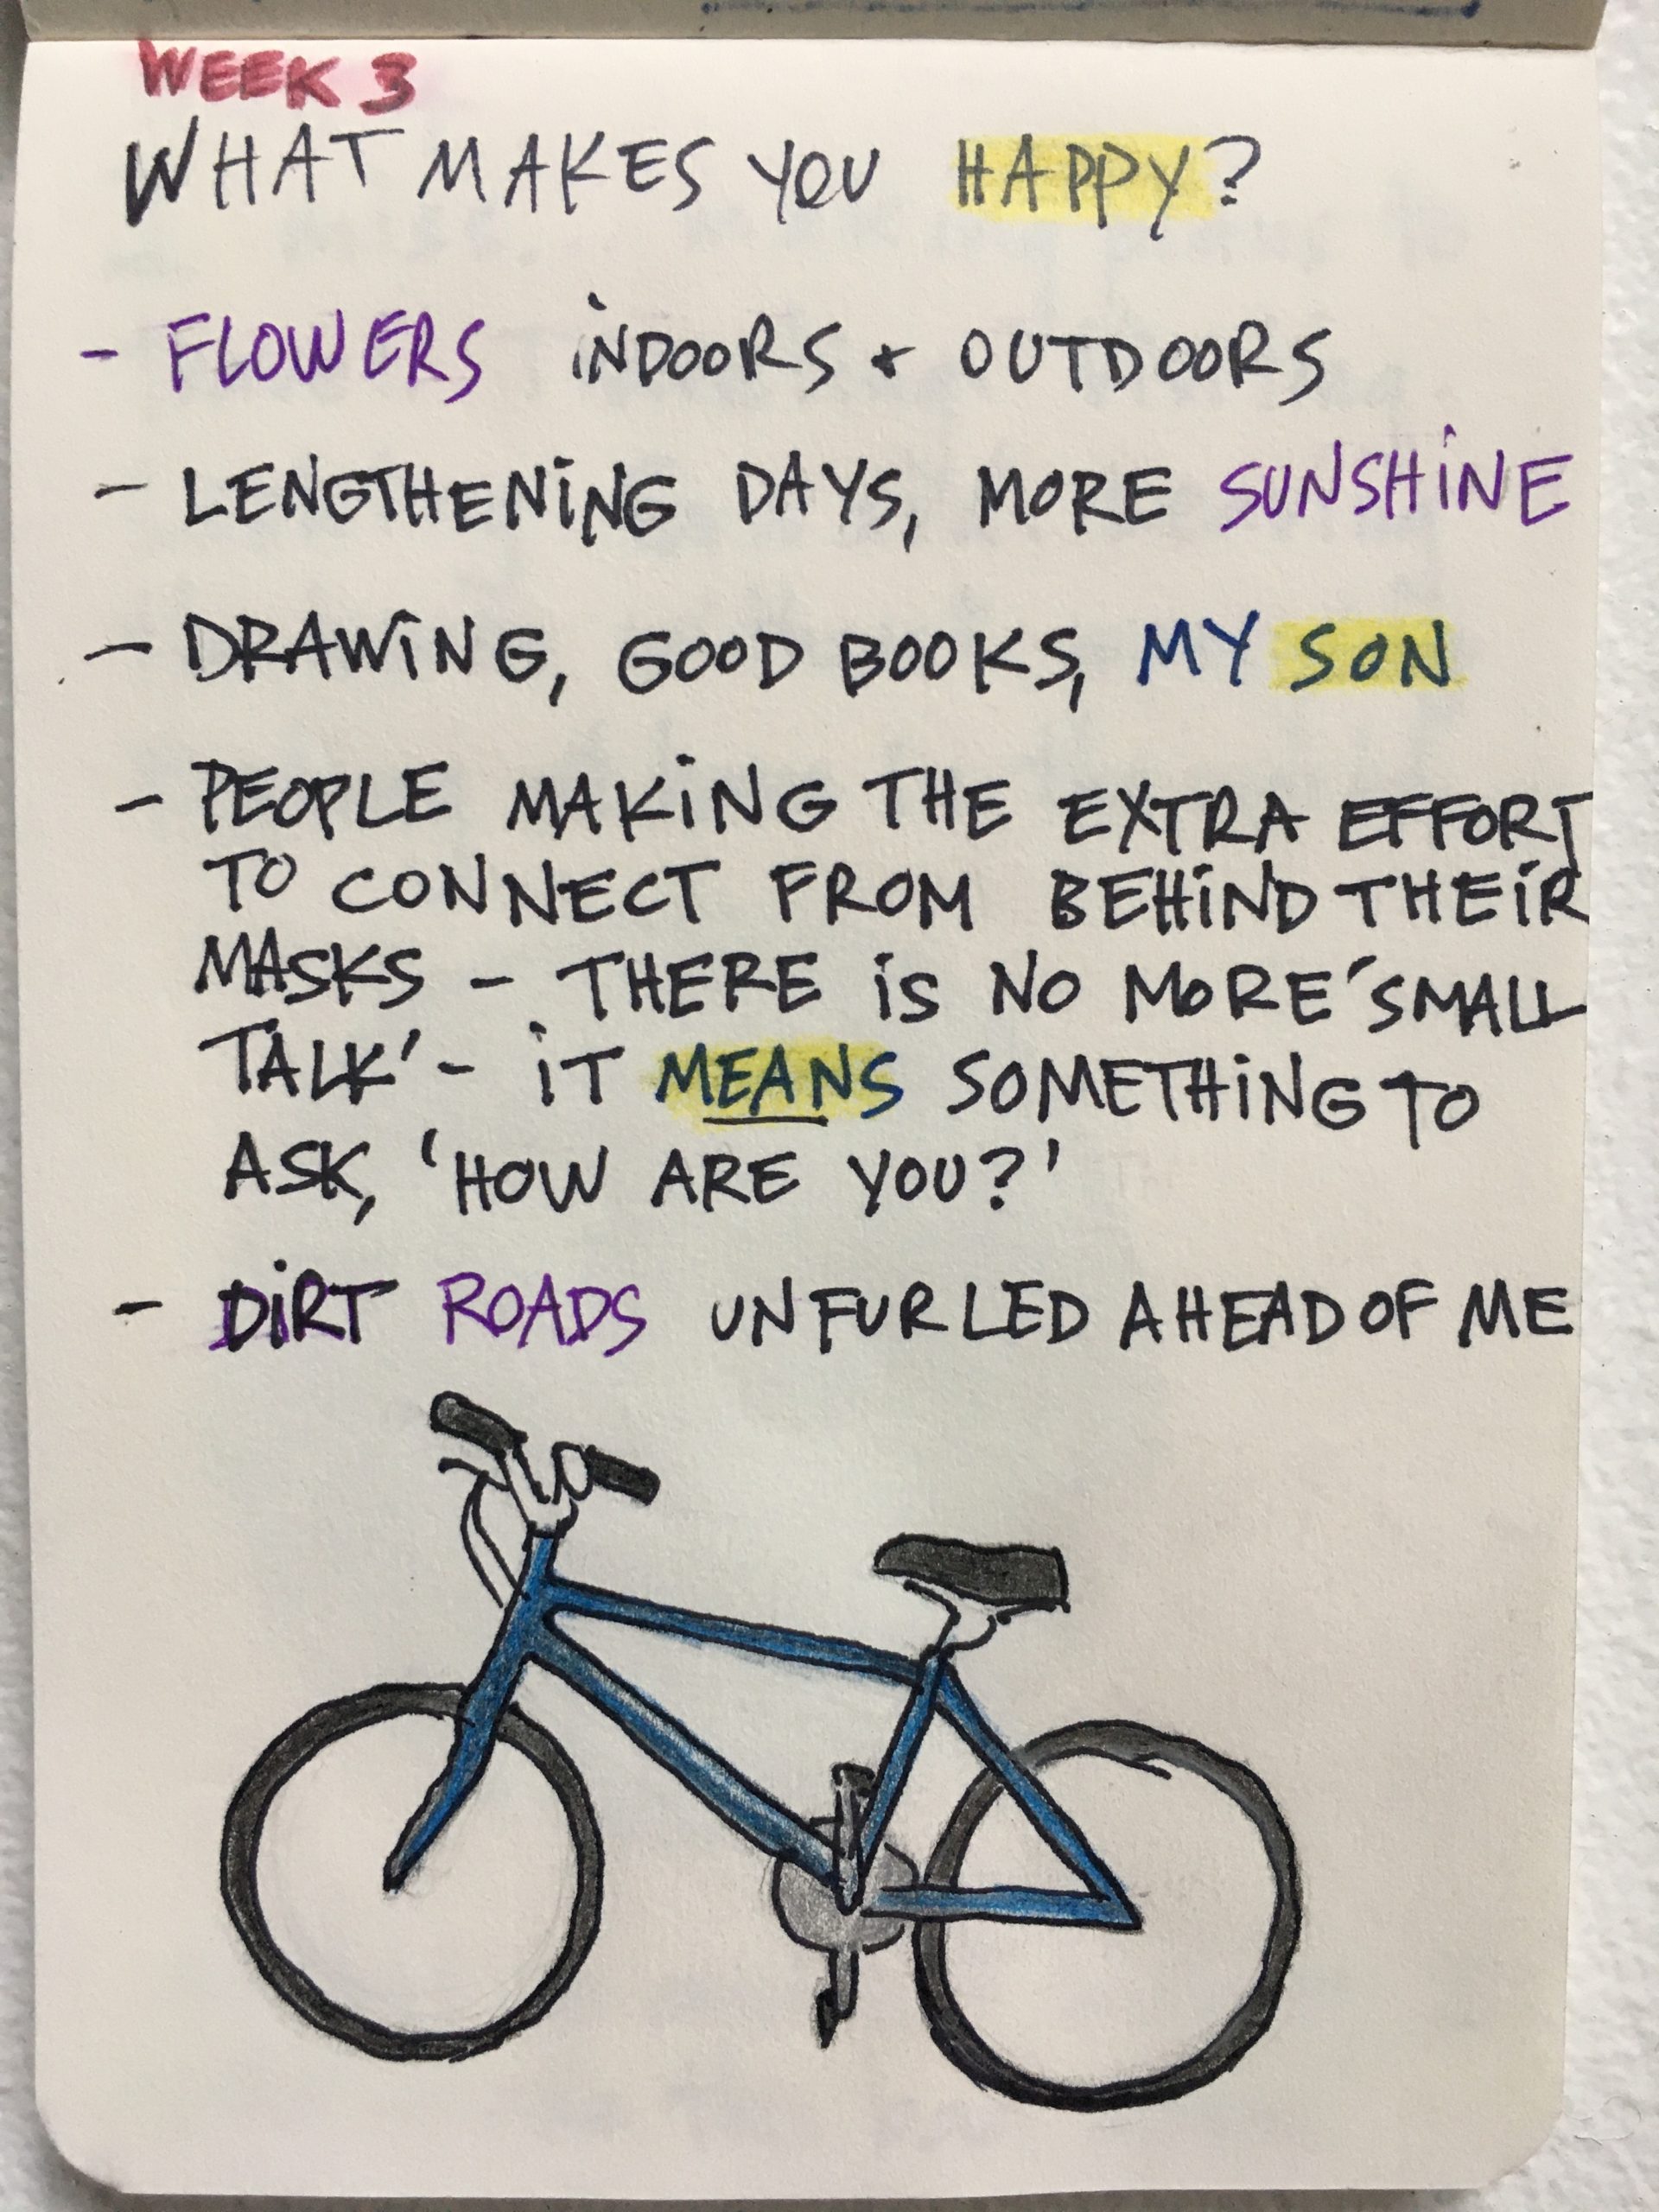 WEEK 3
WHAT MAKES YOU HAPPY?
- FLOWERS INDOORS + OUTDOORS
- LENGTHENING DAYS, MORE SUNSHINE
- DRAWING, GOOD BOOKS, MY SON
- PEOPLE MAKING THE EXTRA EFFORT
TO CONNECT FROM BEHIND THEIR
MASKS - THERE IS NO MORE 'SMALL
TALK' - IT MEANS SOMETHING TO
ASK, 'HOW ARE YOU?'
- DIRT ROADS UNFURLED AHEAD OF ME